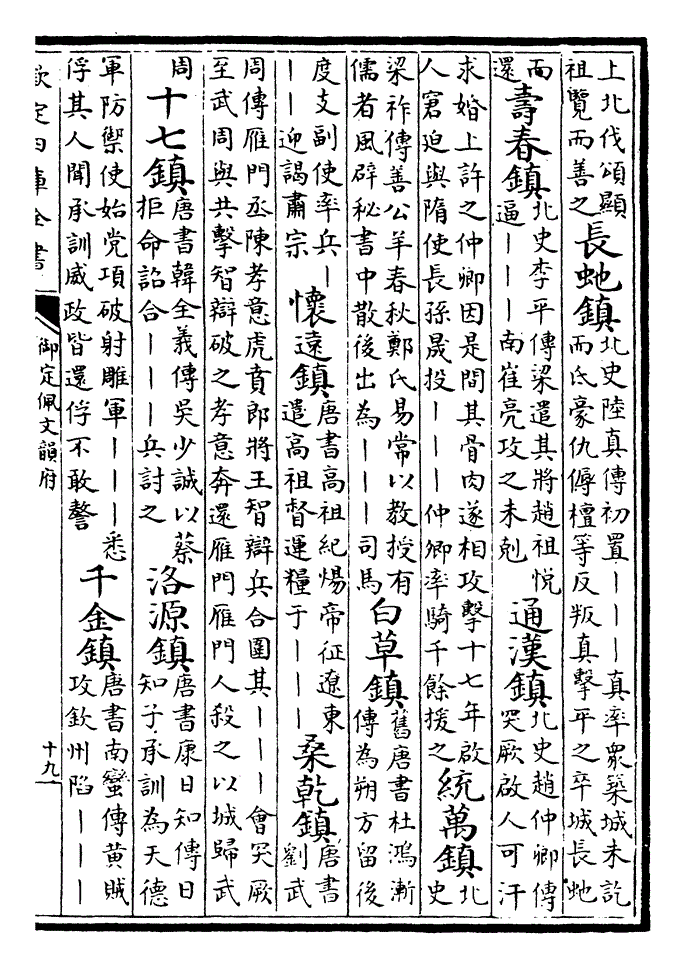 上北伐頌顯
祖覽而善之
長虵鎮
北史陸真傳初置｜｜｜真率衆築城未訖
而氐豪仇傉檀等反叛真擊平之卒城長虵
而
還
壽春鎮
北史李平傳梁遣其將趙祖悅
逼｜｜｜南崔亮攻之未剋
通漢鎮
北史趙仲卿傳
突厥啟人可汗
求婚上許之仲卿因是間其骨肉遂相攻擊十七年啟
人窘迫與隋使長孫晟投｜｜｜仲卿率騎千餘援之
統萬鎮
北
史
梁祚傳善公羊春秋鄭氏易常以教授有
儒者風辟秘書中散後出為｜｜｜司馬
白草鎮
舊唐書杜鴻漸
傳為朔方留後
度支副使率兵｜
｜｜迎謁肅宗
懷遠鎮
唐書高祖紀煬帝征遼東
遣高祖督運糧于｜｜｜
桑乾鎮
唐書
劉武
周傳雁門丞陳孝意虎賁郎將王智辯兵合圍其｜｜｜會突厥
至武周與共擊智辯破之孝意奔還雁門雁門人殺之以城歸武
周
十七鎮
唐書韓全義傳吳少誠以蔡
拒命詔合｜｜｜兵討之
洛源鎮
唐書康日知傳日
知子承訓為天德
軍防禦使始党項破射雕軍｜｜｜悉
俘其人聞承訓威政皆還俘不敢謷
千金鎮
唐書南蠻傳黃賊
攻欽州陷｜｜｜
欽定四庫全書
御定佩文韻府
十九